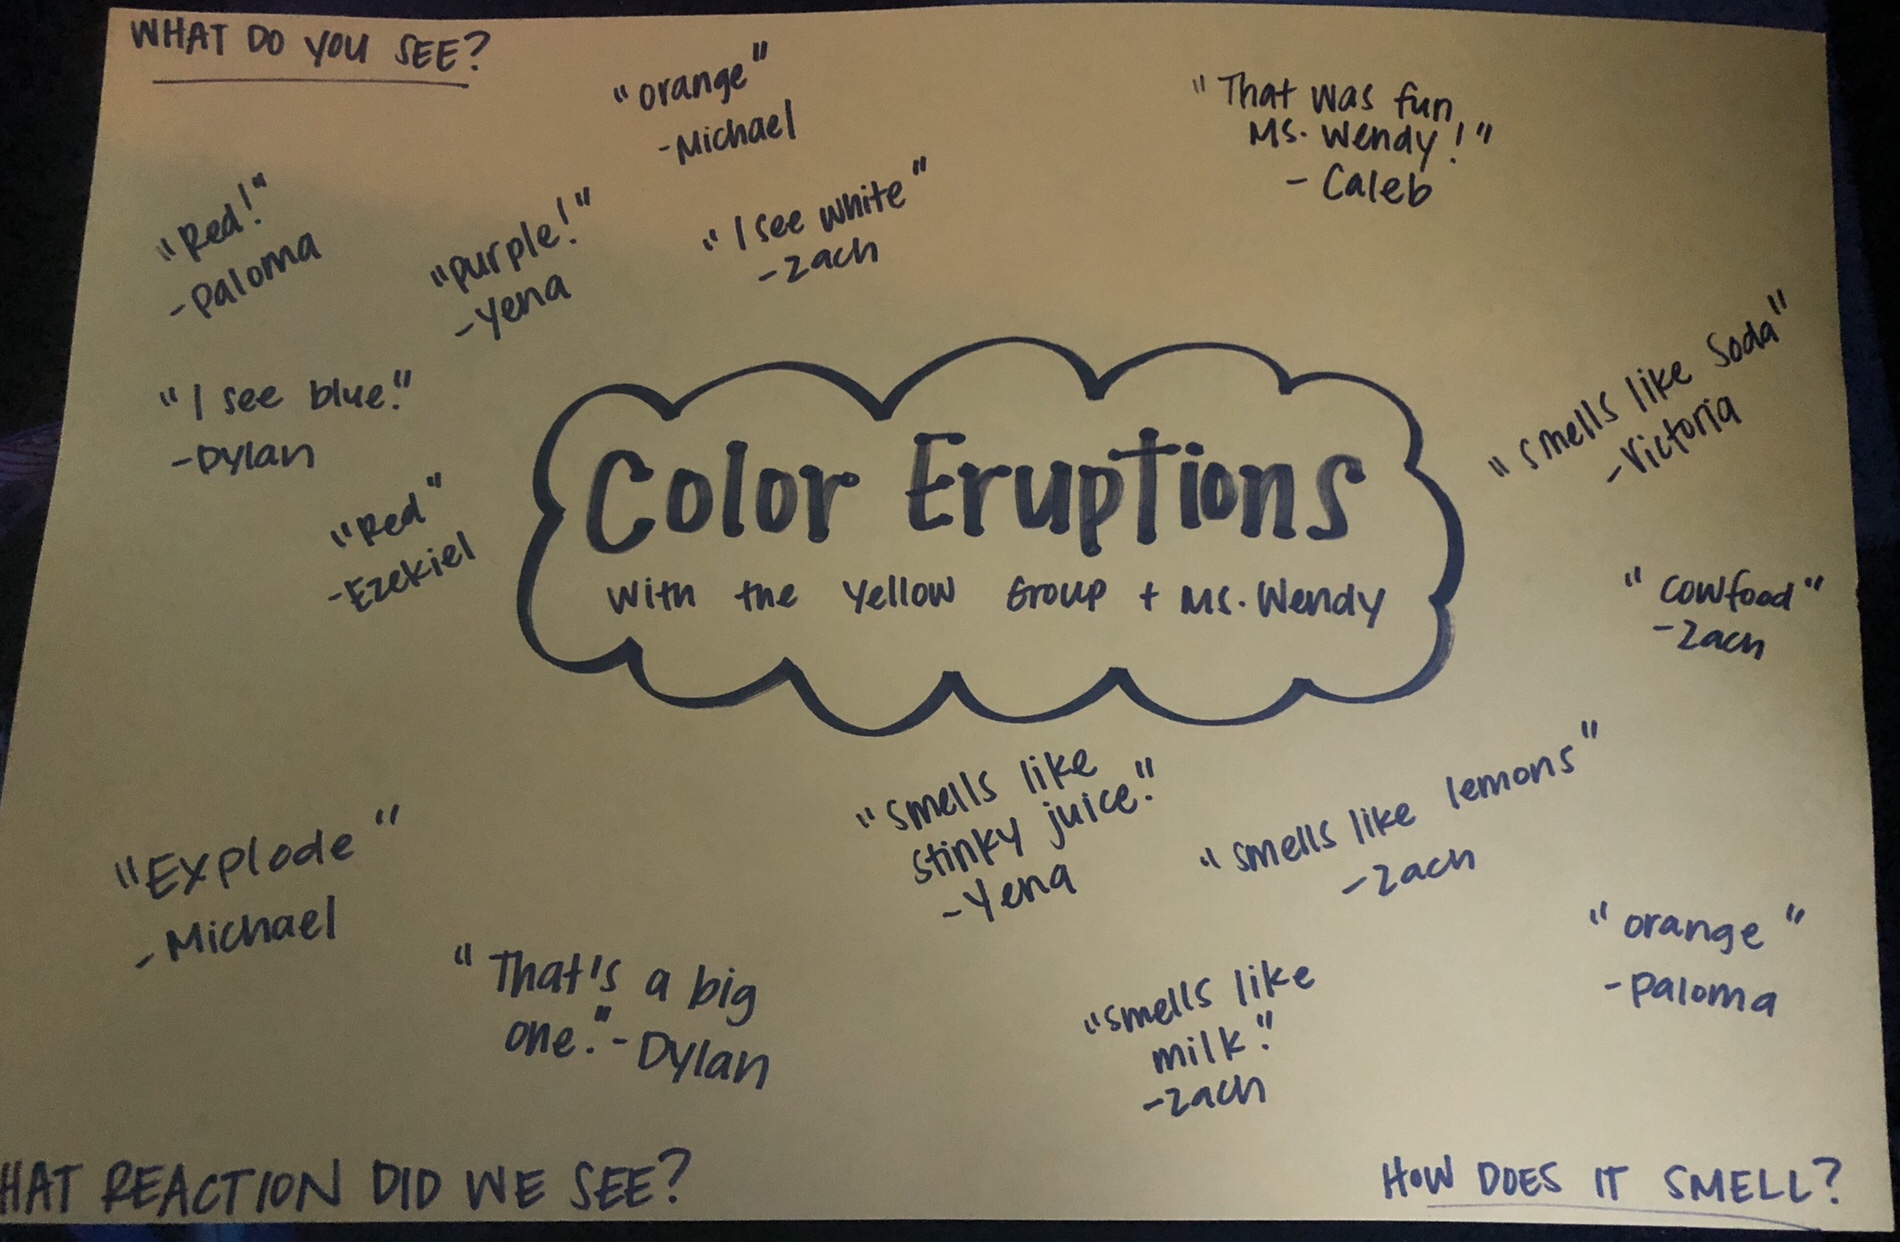 WHAT DO YOU SEE?
"orange"
-Michael
"That was fun
Ms. Wendy!"
- Caleb
"Red!"
-Paloma
"purple!"
-Yena
"I see white"
-Zach
"I see blue."
-Dylan
"Red"
-Ezekiel
Color Eruptions
with the Yellow Group + Ms. Wendy
"smells like Soda"
-Victoria
"cowfood"
-Zach
"smells like
stinky juice."
-Yena
"smells like lemons"
-Zach
"Explode"
-Michael
"That's a big
one."-Dylan
"smells like
milk."
-Zach
"orange"
-Paloma
HAT REACTION DID WE SEE?
HOW DOES IT SMELL?